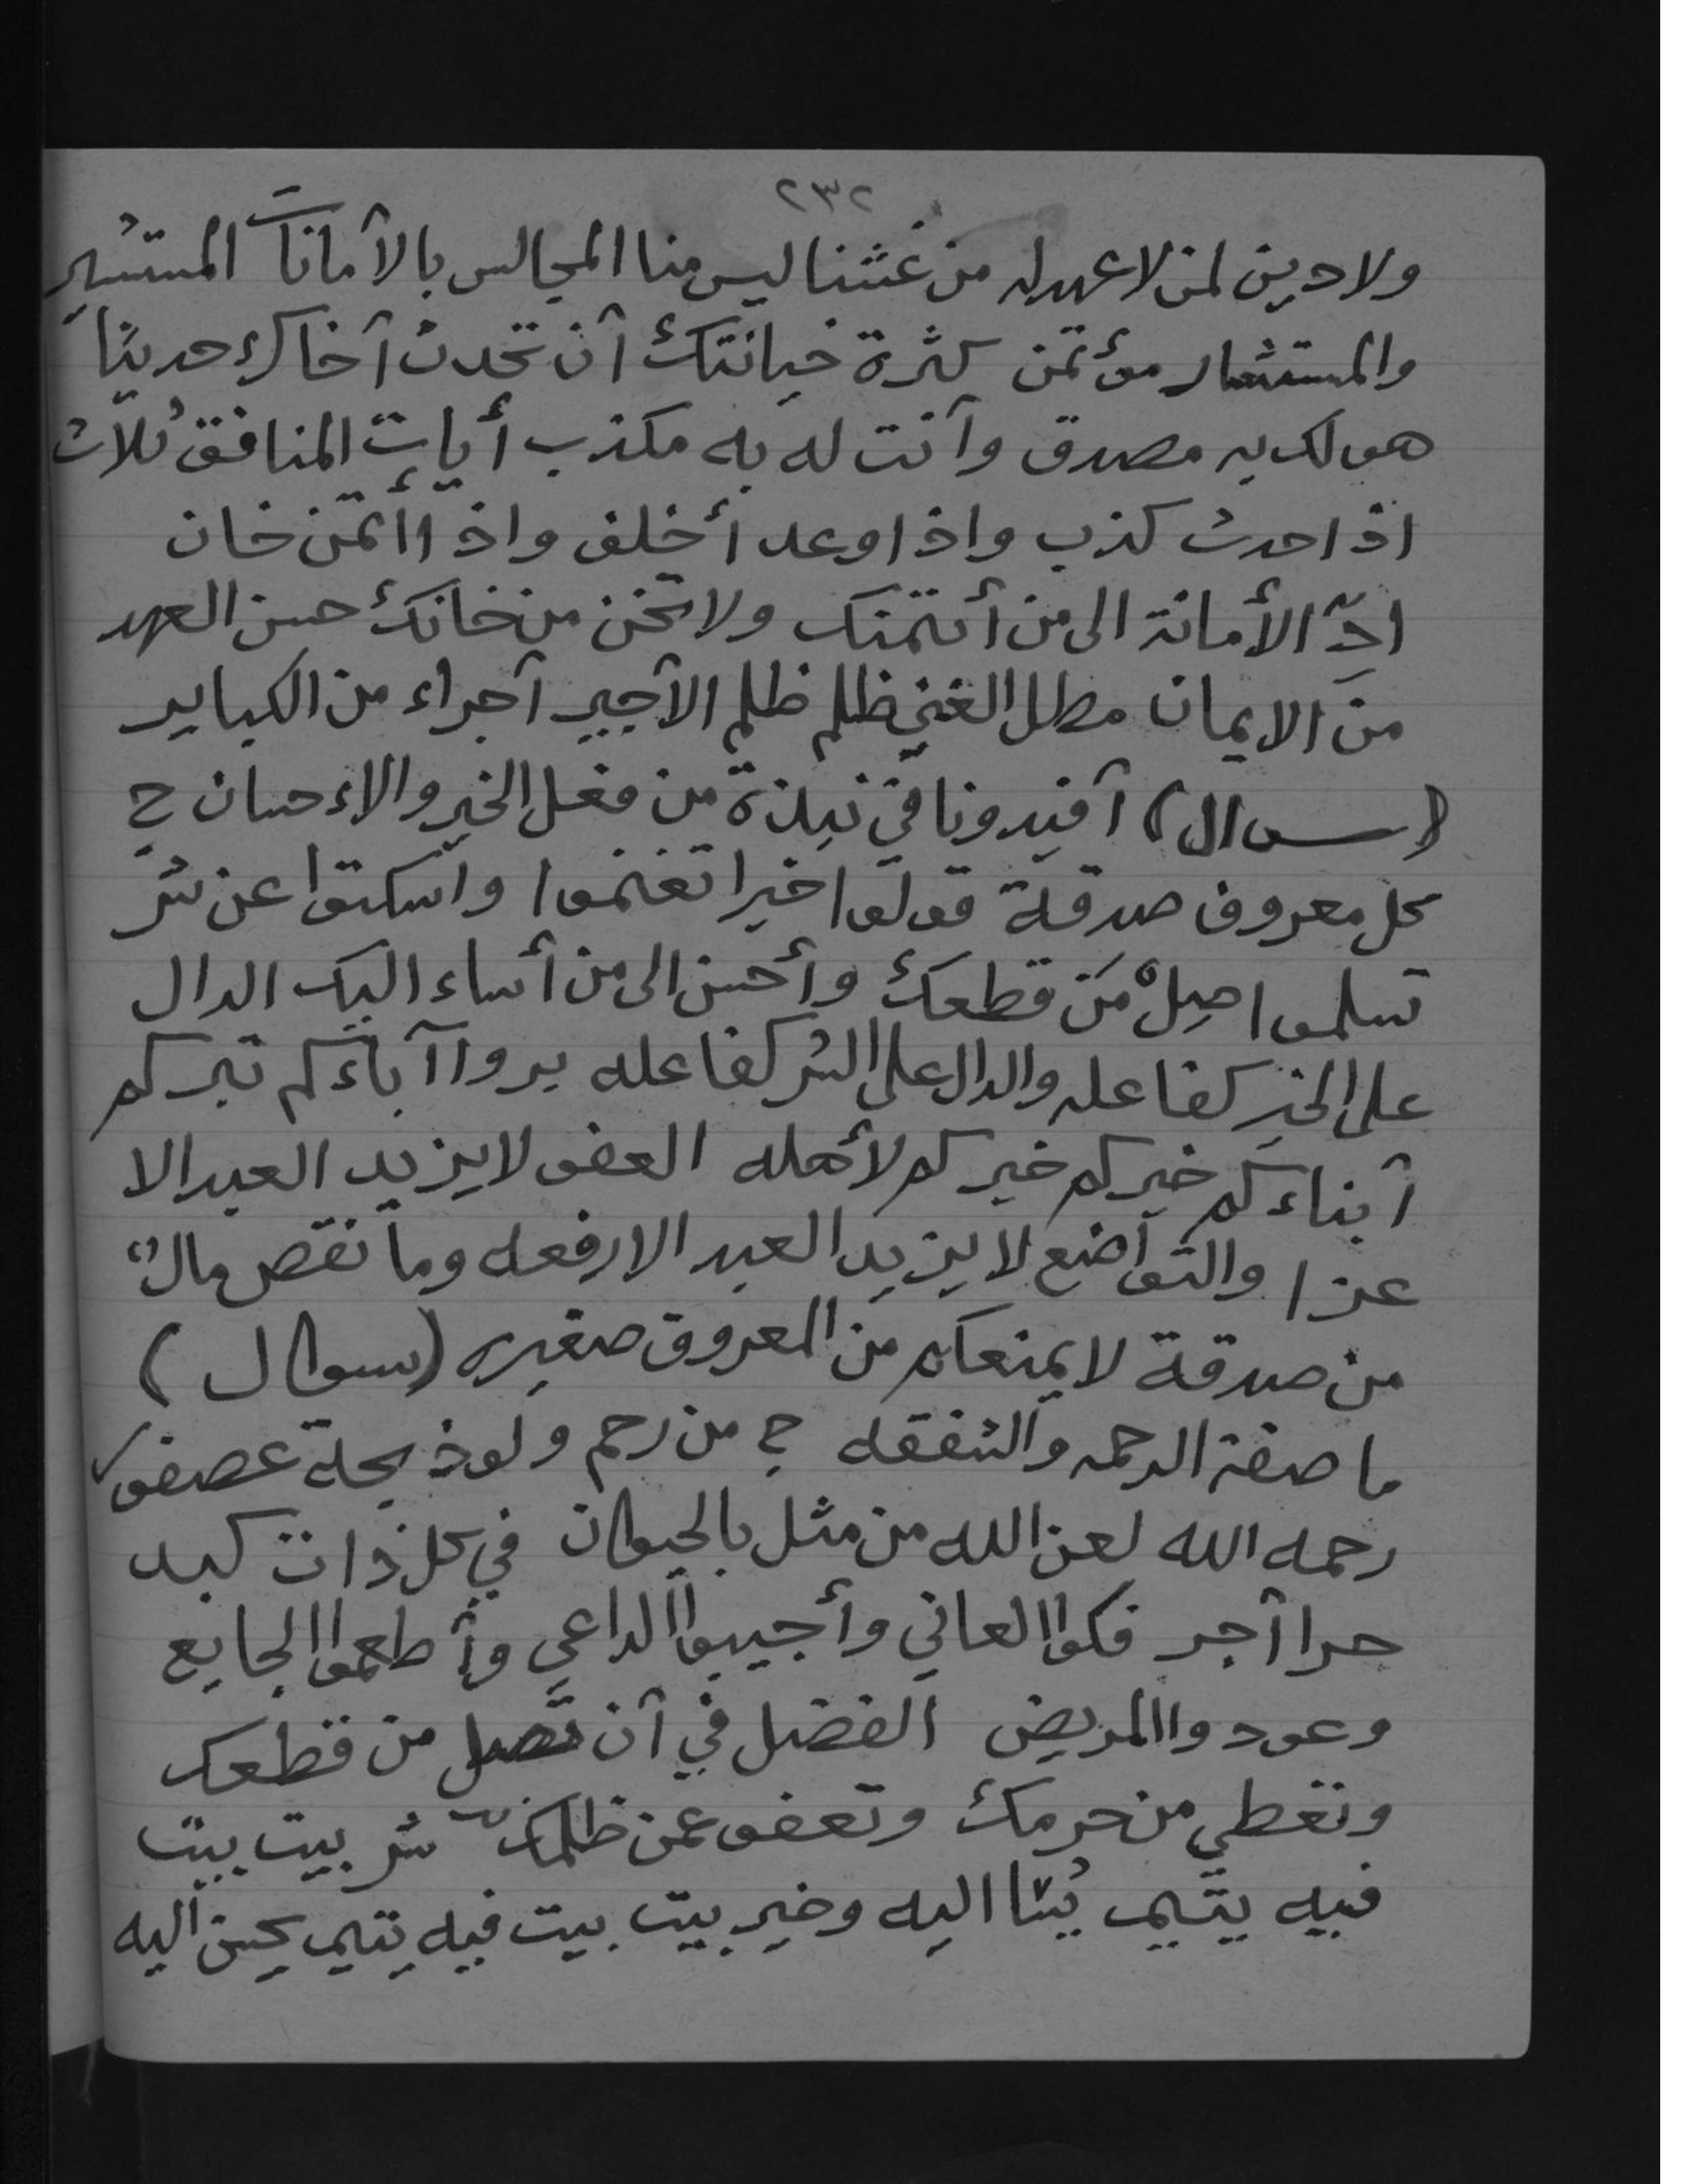 ٢٣٢
ولا دين لمن لا عهد له من غشنا ليس منا المجالس بالآمانات المستشير
والمستشار مؤتمن كثرة خيانتك آن تحدث آخاك حديثا
هو لك به مصدق وآنت له به مكذب أيات المنافق ثلاث
اذا حدث كذب واذا وعد أخلف واذا اأتمن خان
ادِّ الأمانة الى من أئتمنك ولا تخن من خانك حسن العهد
من الايمان مطل الغني ظلم ظلم الآجير آجراء من الكباير
(سوال) آفيدونا في نبذة من فعل الخير والاءحسان ج
كل معروف صدقة قولوا خيرا تغنموا واسكتوا عن شر
تسلموا صِلْ مَن قطعك وأحسن الى من أساء اليك الدال
على الخير كفاعله والدال على الشر كفاعله بروا آباءكم تبركم
آبناءكم خيركم خيركم لأهله العفو لا يزيد العبد الا
عزا والتواضع لا يزيد العبد الا رفعه وما نقص مالٌ
من صدقة لا يمنعكم من المعروف صغيره (سوال)
ما صفة الرحمه والشفقه ج من رحم ولو ذبحة عصفور
رحمه الله لعن الله من مثل بالحيوان في كل ذات كبد
حرا آجر فكوا العاني وأجيبوا الداعي وأطعموا الجايع
وعودوا المريض الفضل في آن تصل من قطعك
وتعطي من حرمك وتعفو عمن ظلمك شر بيت بيت
فيه يتيم يُسَا اليه وخير بيت بيت فيه يتيم يحسن اليه